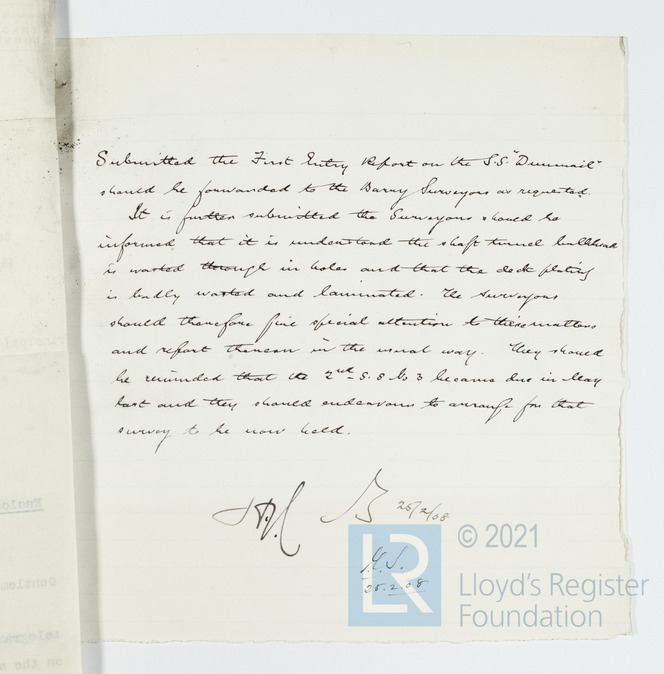 Submitted the First Entry Report on the S.S. "Dunmail"
should be forwarded to the Barry Surveyors as requested.
It is further submitted the Surveyors should be
informed that it is understood the shaft tunnel bulkhead
is wasted through in holes and that the deck plating
is badly wasted and laminated. The Surveyors
should therefore give special attention to these matters
and report thereon in the usual way. They should
be reminded that the 2nd S.S. No 3 became due in May
last and they should endeavour to arrange for that
survey to be now held.
25/2/08
25.2.08
LR
© 2021
Lloyd's Register
Foundation